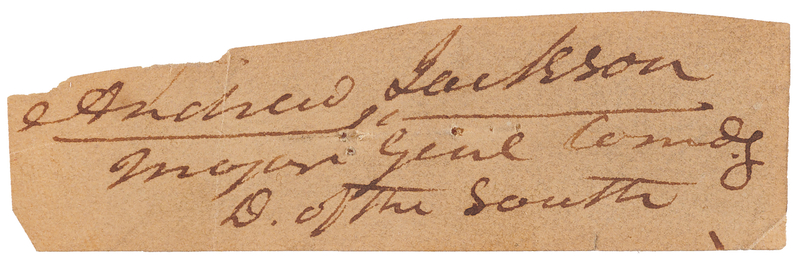 Andrew Jackson
Major Genl Comdg
D. of the South